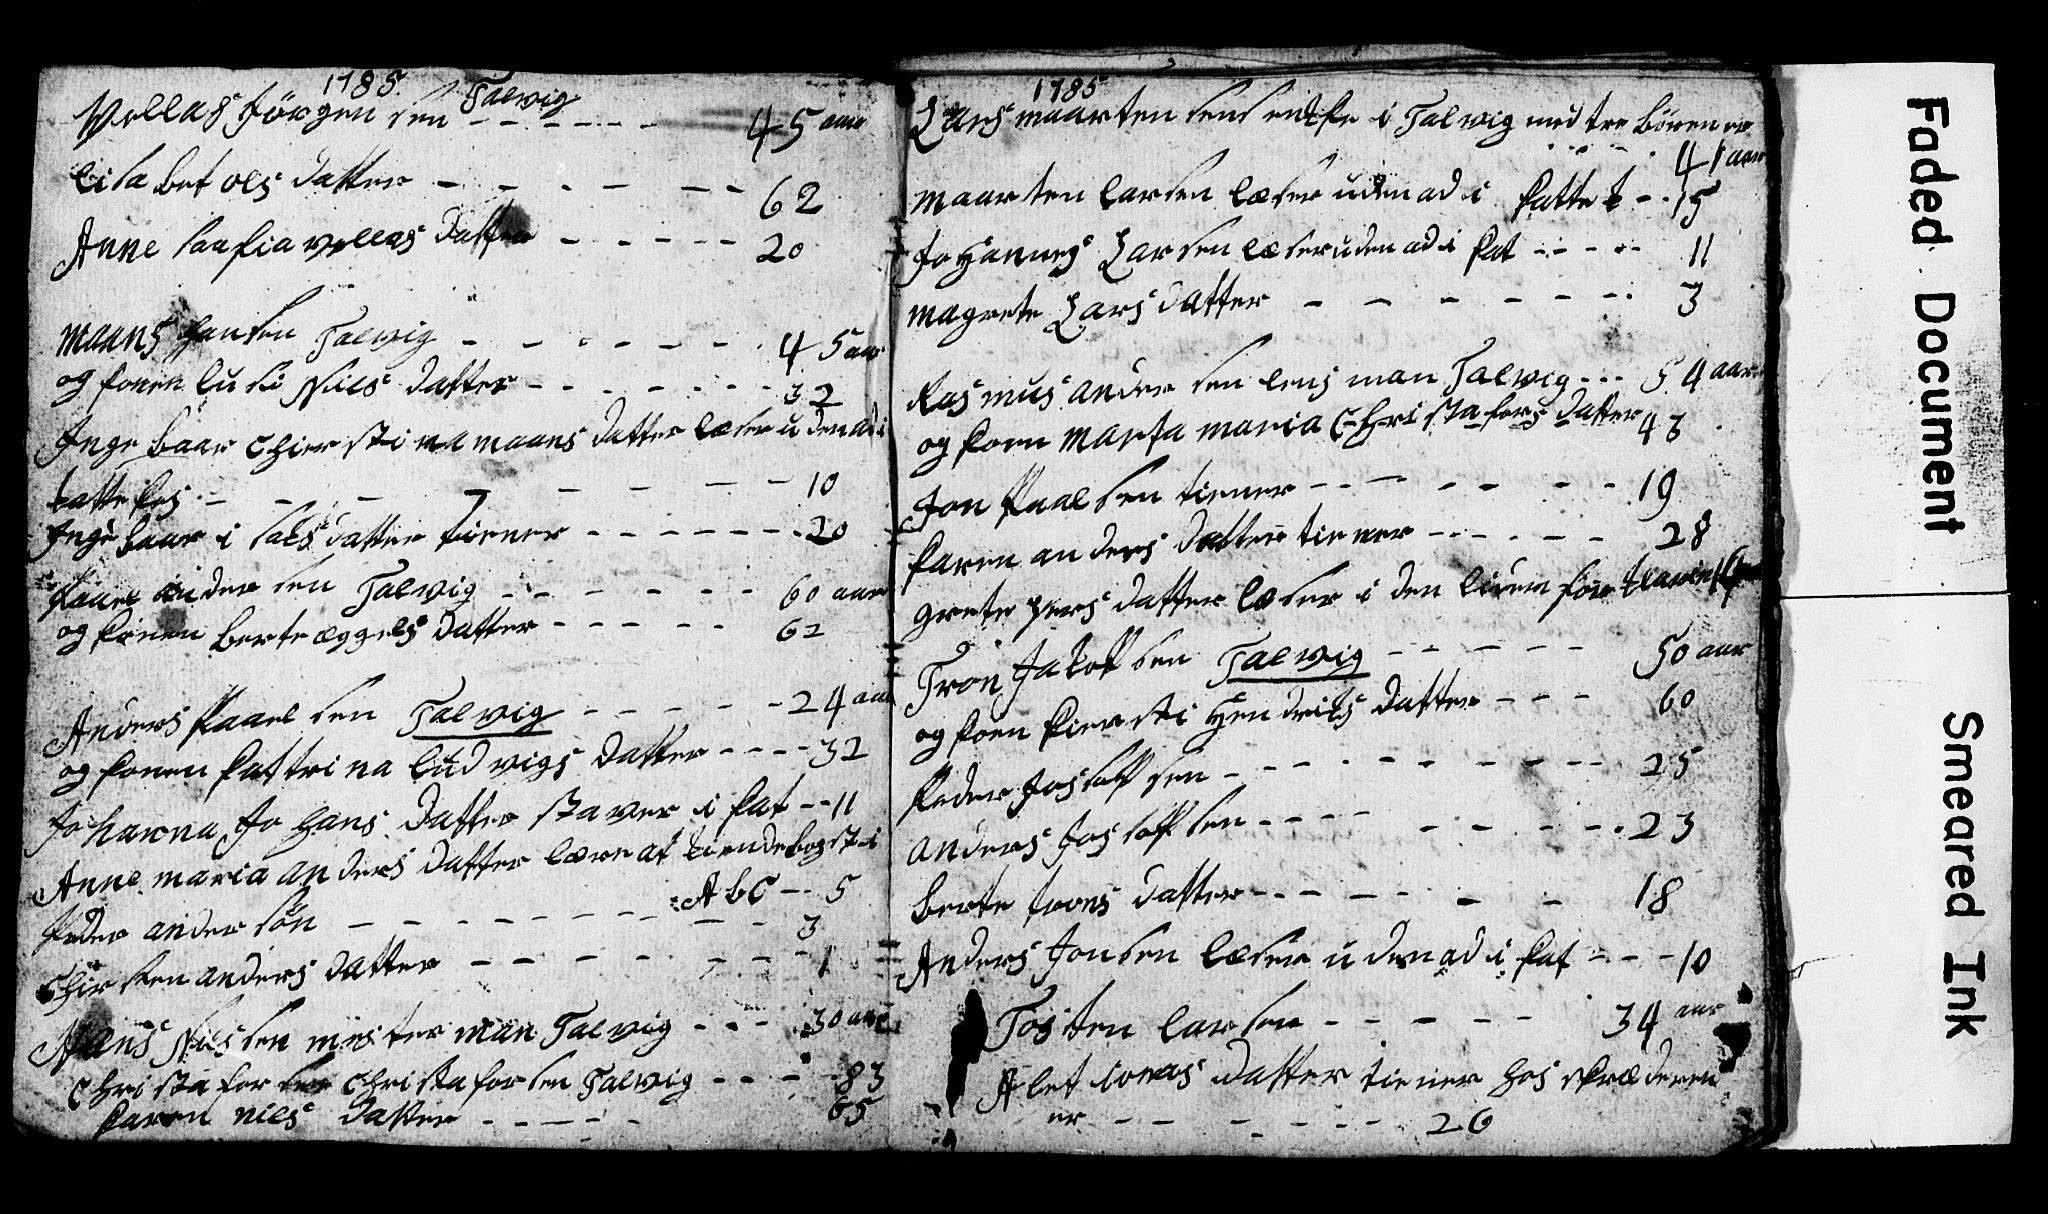 1785. Talvig
Vellas Jörgen sen - - - - - - 45 aar
Lisa bet ols datter - - - - - - 62
Anne saafia vellas Datter - - - - - 20
maans Hansen Talvig - - - - - - 45 aar
og konen lusi Niels datter - - - - - - - 32
Inge baar Chiersti na maans datter læser uden ad i
kattekes - - - - - - - - 10
Inge baar i saks datter tiener - - - - - - - 20
Paael andersen Talvig - - - - - - 60 aar
og konen berte æggels datter - - - - - 62
Anders Paael sen Talvig - - - - - - 24 aar
og konen kattrina ludvigs datter - - - - 32
Johanna Johans Datter staver i kat - - 11
Anne maria anders datter lære at kiende bogsta
ABC - - 5
Peder andersøn - - - - - - - - - - - 3
Chirsten anders datter - - - - - - - - 1
Hans Nielsen mester man Talvig - - - 30 aar
Christafor Christaforsen Talvig - - - - 83
karen niels datter - - - - - 65
1785
Lars maartensens enke i Talvig med tre bören er
- - - - - 41 aar
maarten larsen læser uden ad i kattet - - 15
Johannes Larsen læser uden ad i kat - - - - - 11
magrete Lars datter - - - - - - - 3
Rasmus andersen lens man Talvig - - - 54 aar
og koen marta maria Christafors datter 43
Jon Paalsen tiener - - - - - - - - 19
karen anders datter tiener - - - - - - 28
grete pers datter læser i den liden for
Tron Jakopsen Talvig - - - - - - 50 aar
og koen kiersti Hendriks datter - - - 60
Peder Josaffsen - - - - - - - - - 25
anders Josaffsen - - - - - - - - - 23
berte trons datter - - - - - - 18
Anders Jonsen læser uden ad i kat - - - - 10
Tosten larsen - - - - - - 34 aar
Alet ionas datter tiener hos skrædderen
er - - - - - - - 26
Faded Document
Smeared Ink